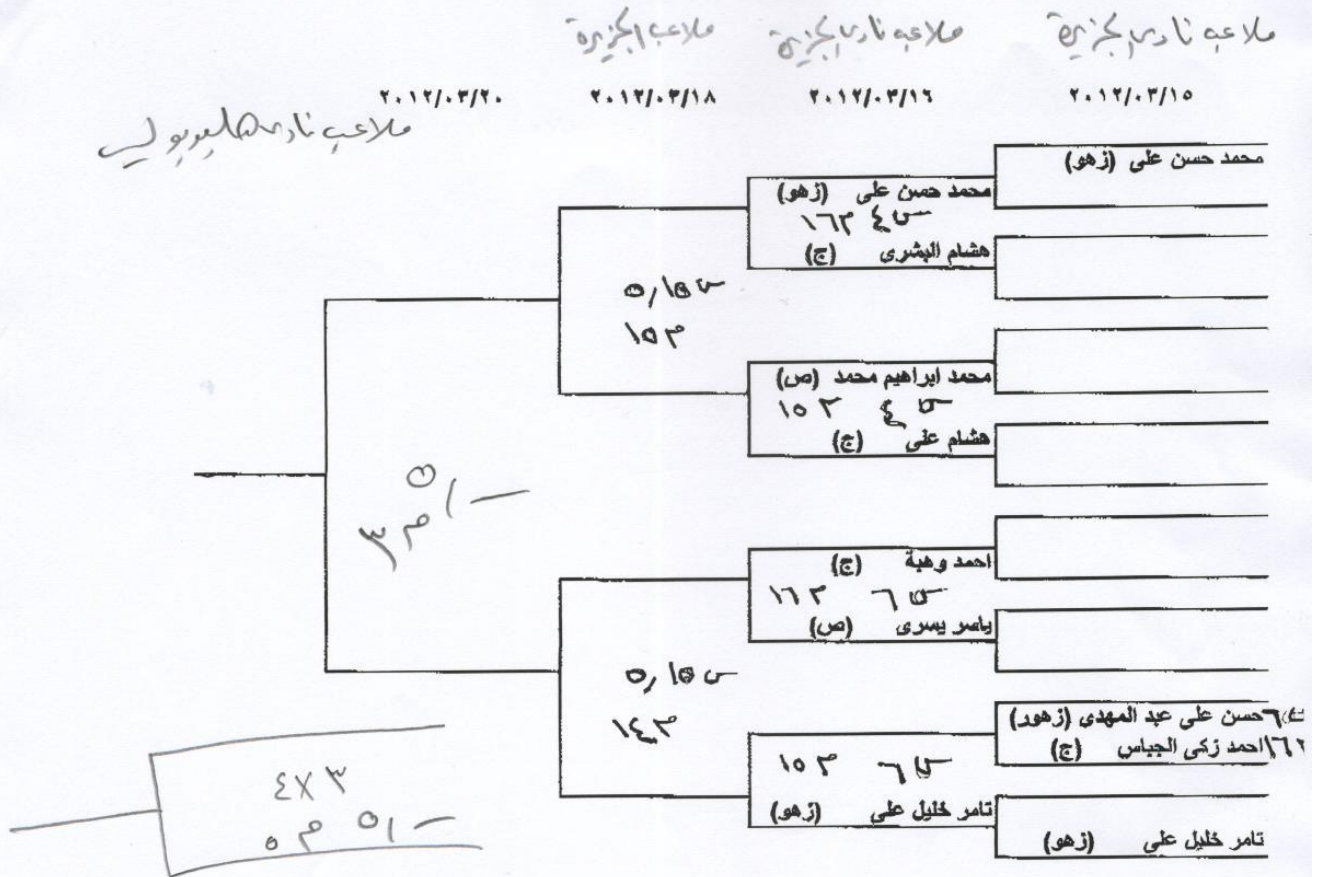 ملاعب نادى الجزيرة
ملاعب نادى الجزيرة
ملاعب الجزيرة
٢٠١٢/٠٣/١٥
٢٠١٢/٠٣/١٦
٢٠١٢/٠٣/١٨
٢٠١٢/٠٣/٢٠
ملاعب نادى هليوبوليس
محمد حسن على (زهو)
محمد حسن على (زهو)
س ٤ م ١٦
هشام البشرى (ج)
س ٥,١٥
م ١٥
محمد ابراهيم محمد (ص)
س ٤ م ١٥
هشام على (ج)
م ٣
احمد وهبة (ج)
س ٦ م ١٦
ياسر يسرى (ص)
س ٥,١٥
م ١٤
حسن على عبد المهدى (زهور)
احمد زكى الجباس (ج)
س ٦ م ١٥
تامر خليل على (زهو)
تامر خليل علي (زهو)
٣ × ٤
م ٥